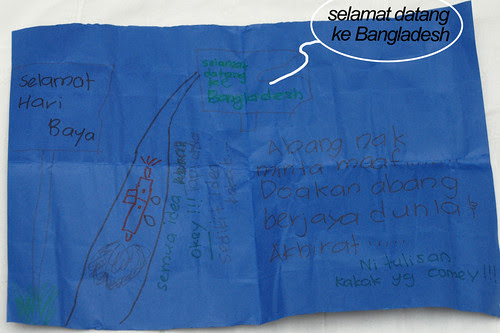 selamat datang
ke Bangladesh
Selamat
Hari
Baya
selamat
datang
ke
Bangladesh
semua idea kakak
okey!!!
Abang nak
minta maaf......
Doakan abang
berjaya dunia &
Akhirat.....
Ni tulisan
kakak yg comey!!!